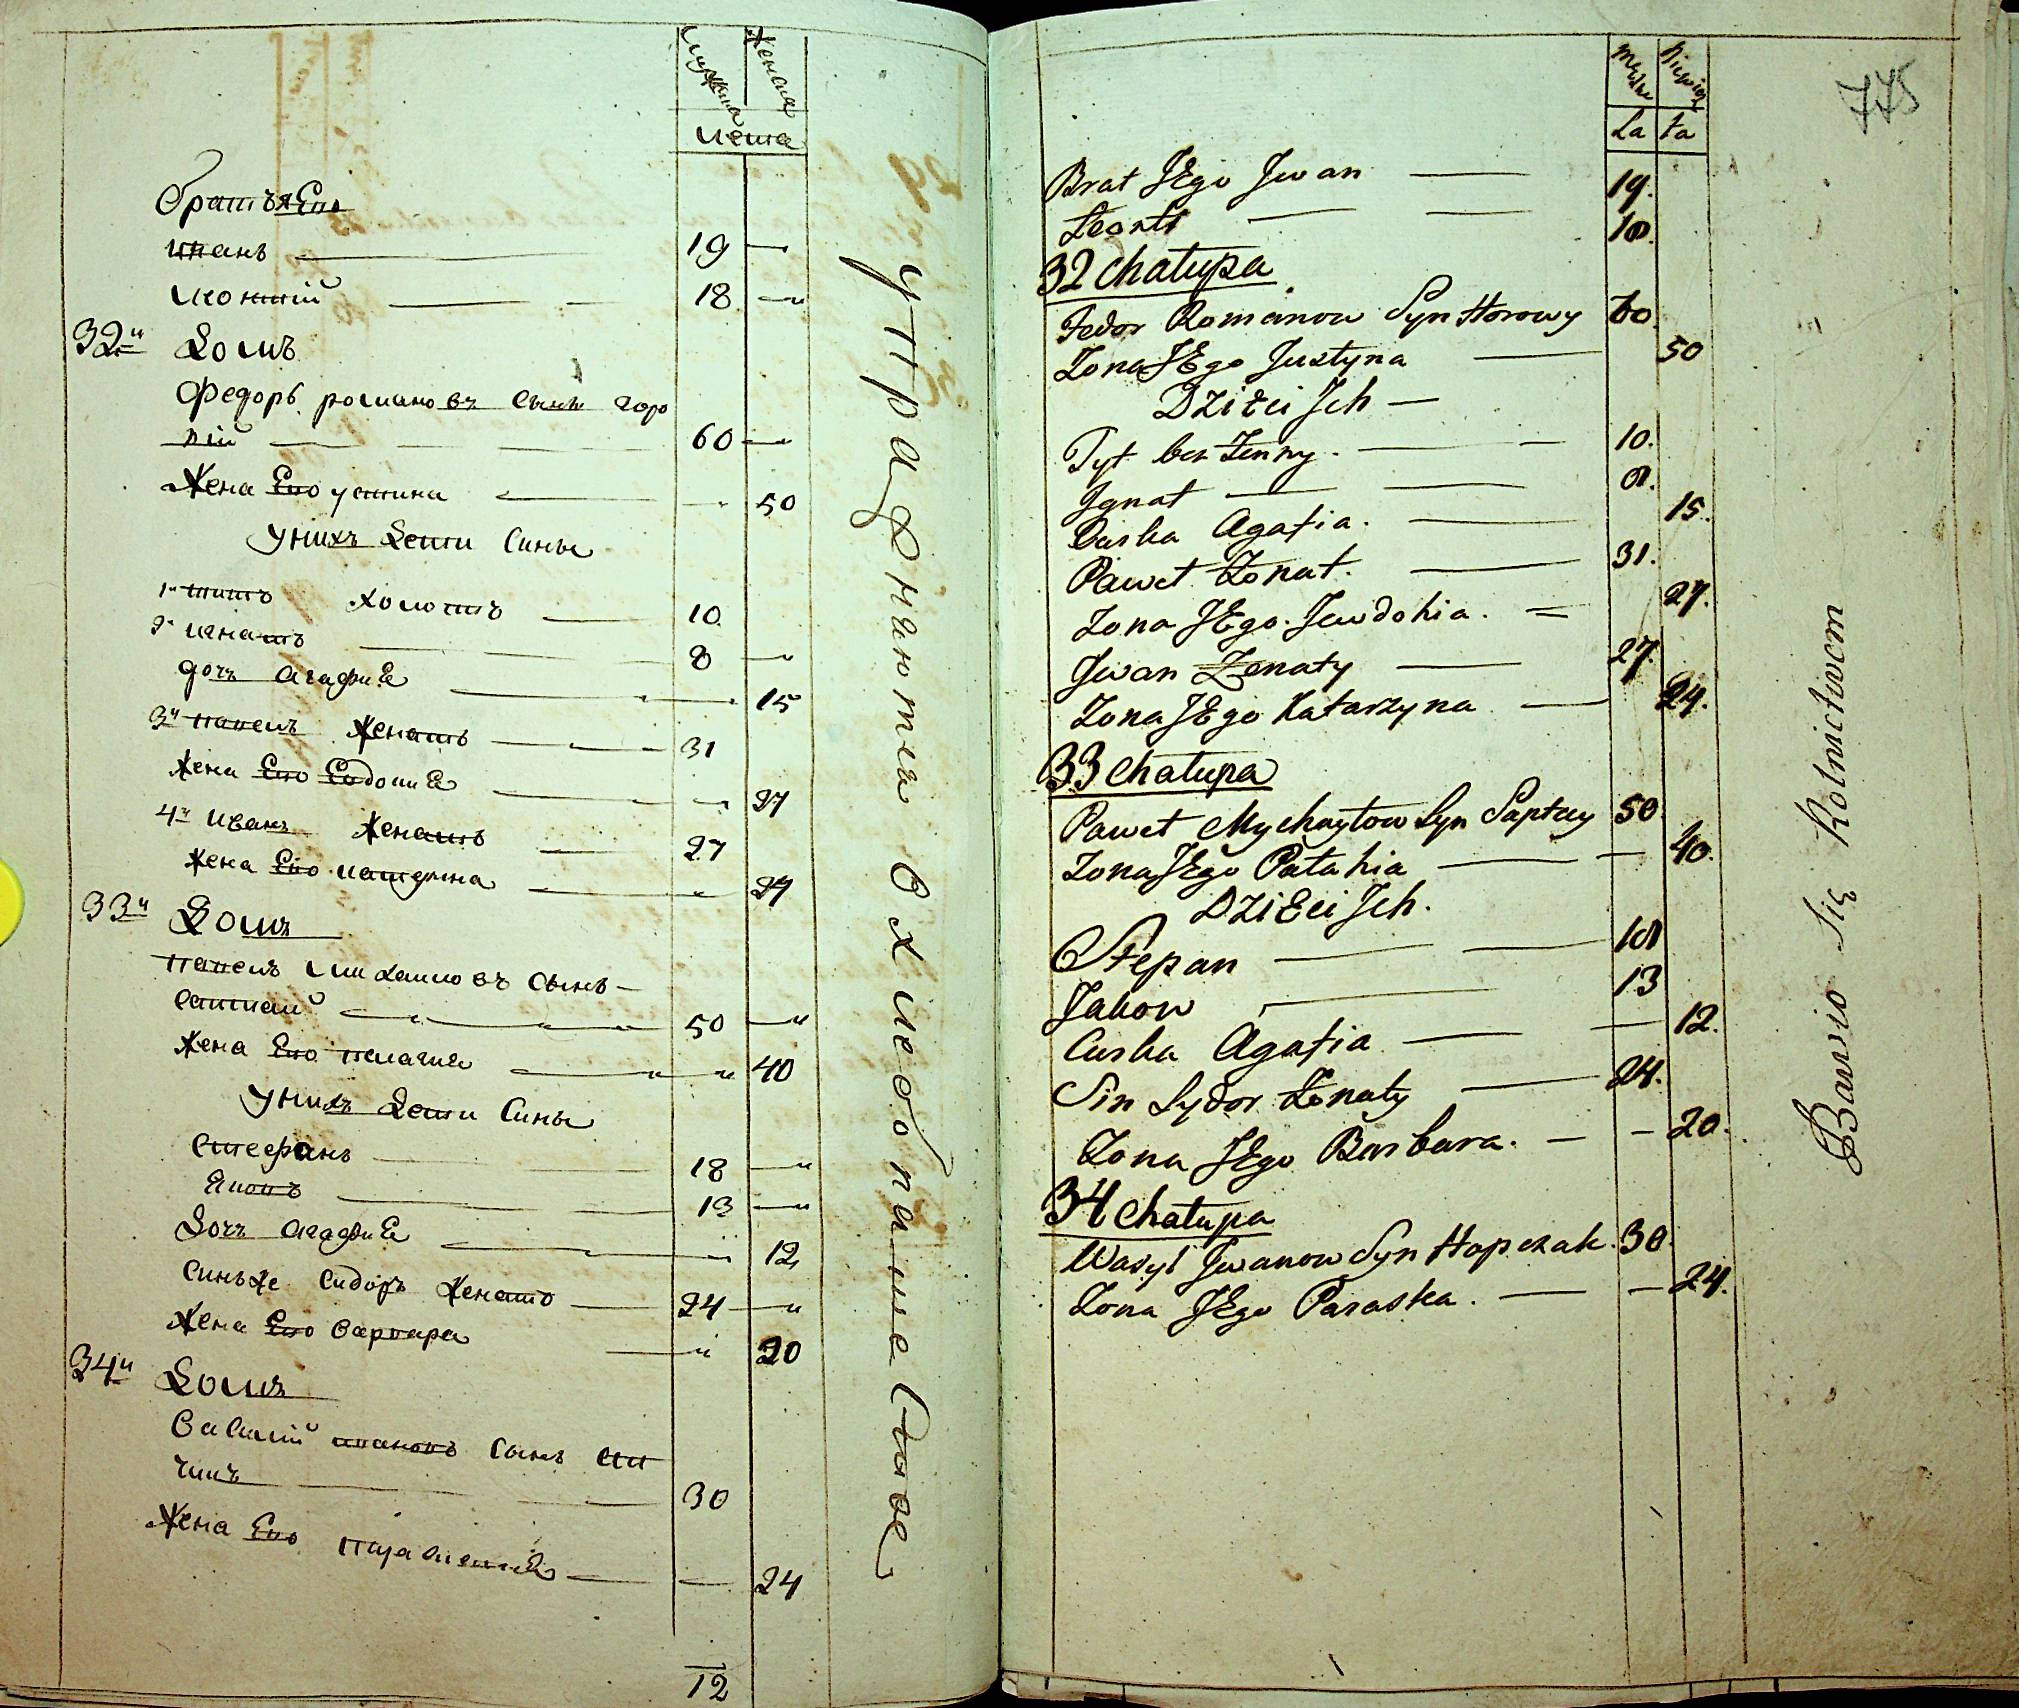 мужска женска
лета
братья Его
иванъ 19
леонтій 18
32й Домъ
Федоръ романовъ сынъ горо
вій 60
Жена Его устина 50
У нихъ Дети Сины
1й титъ холостъ 10
2й игнатъ 8
дочь агафия 15
3й павелъ Женатъ 31
Жена Его Евдокия 27
4й иванъ Женатъ 27
Жена Его катерина 24
33й Домъ
павелъ михайловъ сынъ
саптай 50
Жена Его пелагия 40
У нихъ Дети Сины
Стефанъ 18
Яковъ 13
Дочь агафия 12
Синъ же Сидоръ Женатъ 24
Жена Его варвара 20
34й Домъ
Василий ивановъ сынъ
чикъ 30
Жена Его параскевия 24
12
упражняются в хлебопашестве
męzka
La ta
775
Brat JEgo Jwan 19.
Leonti 18.
32 chałupa
Fedor Romanow Syn Horowy 60.
Zona JEgo Justyna 50
DziEci Jch
Tyt bez Zenny. 10.
Jgnat 8.
Curka Agafia. 15.
Paweł Zonat. 31.
Zona JEgo. Jewdokia. 27.
Jwan Zenaty 27.
Zona JEgo Katarzyna 24.
33 chałupa
Paweł Mychayłow Syn Saptay 50
Zona JEgo Palahia 40.
DziEci Jch.
Stepan 18
Jakow 13
Curka Agafia 12.
Sin Sydor Zonaty 24.
Zona JEgo Barbara. 20.
34 chałupa
Wasyl Jwanow Syn Hapczak. 30.
Zona JEgo Paraska. 24.
Bawio Się Rolnictwem